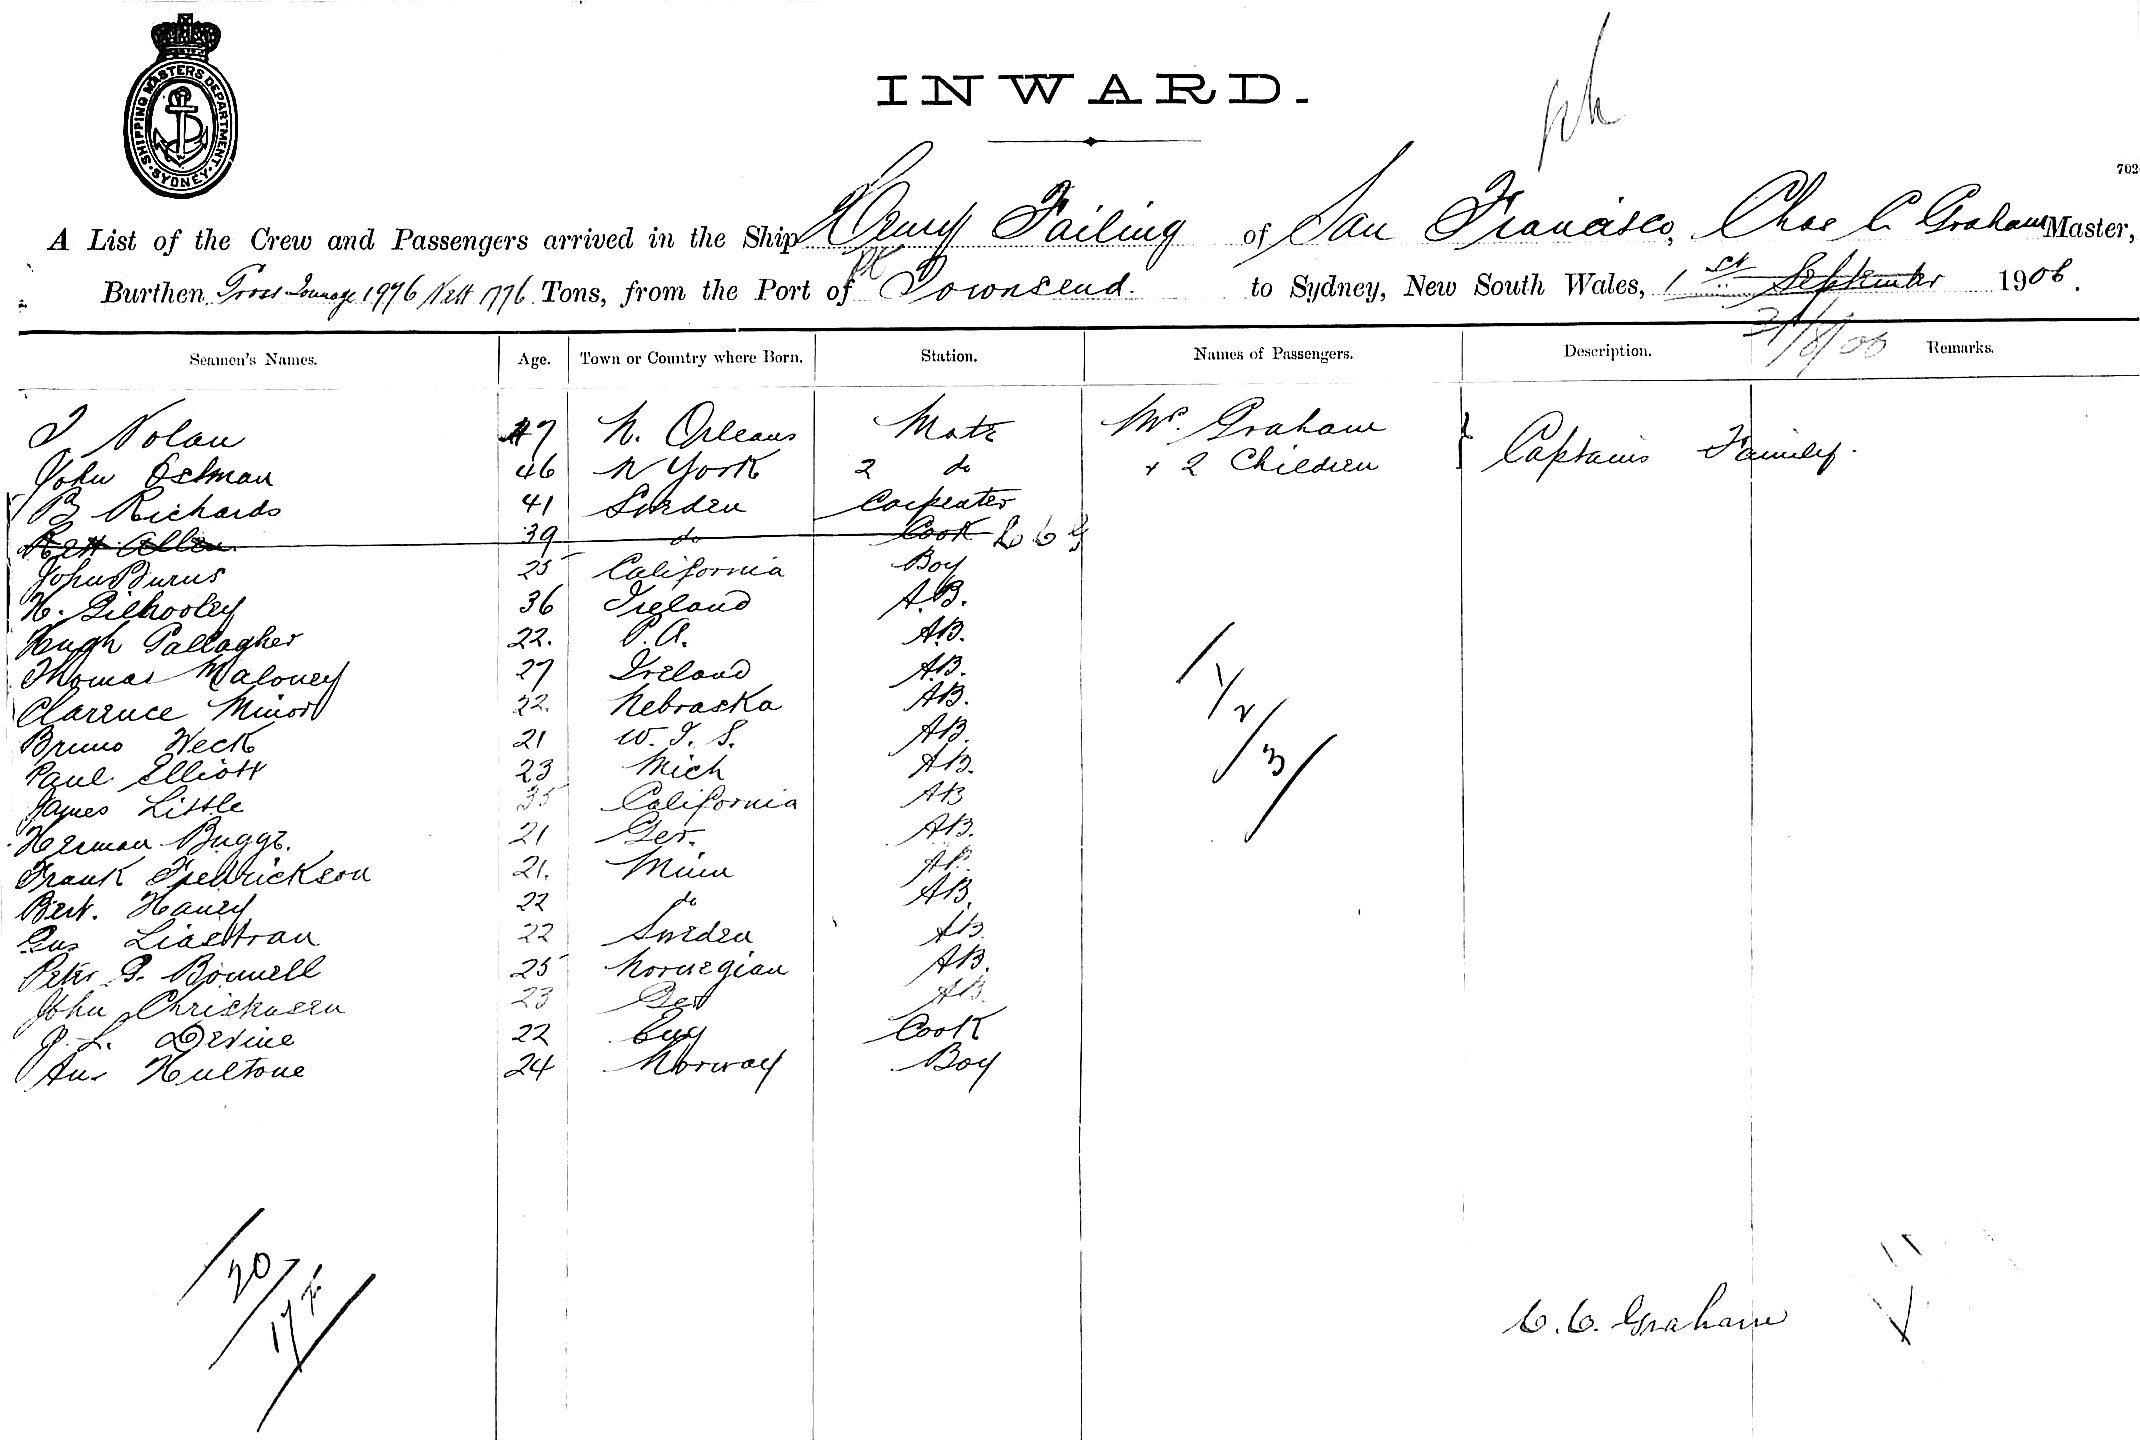 SHIPPING MASTERS DEPARTMENT. SYDNEY.
INWARD.
702
A List of the Crew and Passengers arrived in the Ship Henry Failing of San Francisco, Chas C. Graham Master,
Burthen Gross Tonnage 1976 Nett 1776 Tons, from the Port of Pt Townsend. to Sydney, New South Wales, 1st September 1906.
31/8/06
Seamen's Names. Age. Town or Country where Born. Station. Names of Passengers. Description. Remarks.
J Nolan 47 N. Orleans Mate Mrs. Graham Captains Family.
John Ostman 46 N York 2 do + 2 Children
B Richards 41 Sweden Carpenter
Allen 39 do Cook
John Burns 25 California Boy
H. Gilhooley 36 Ireland A.B.
Hugh Gallagher 22. P.A. AB.
Thomas Maloney 27 Ireland AB.
Clarence Minor 22. Nebraska AB.
Bruno Weck 21 W. I. S. AB.
Paul Elliott 23 Mich AB.
James Little 35 California AB
Herman Bugge. 21 Ger. AB.
Frank Fredrickson 21. Minn AB.
Bert. Haney 22 do AB.
Gus Liastran 22 Sweden AB
Peter G. Bonnell 25 Norwegian AB.
John Christensen 23 Ger AB.
J. L. Devine 22 Eng Cook
Ans Hultone 24 Norway Boy
/ 1/2 / 3 /
/20/
17
C. C. Graham